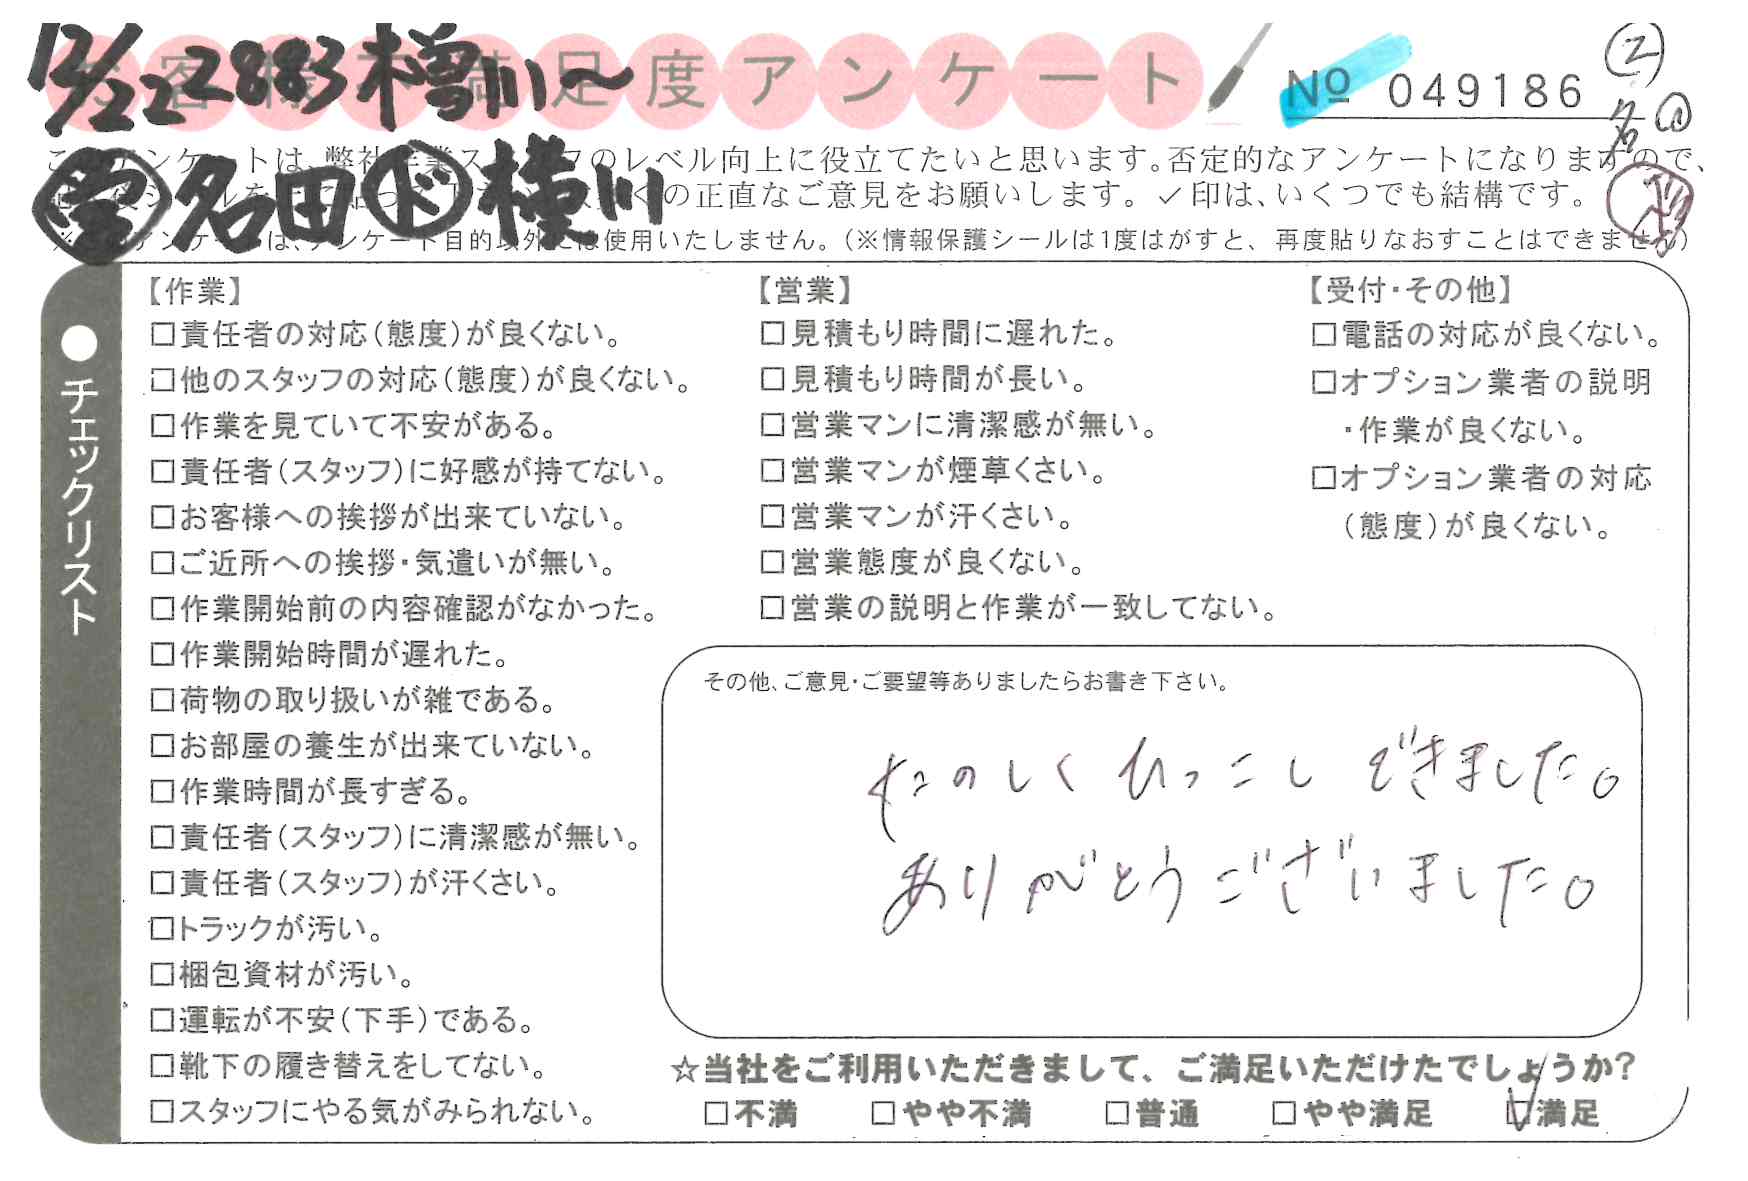 12/22 2883 樽川〜
お客様不満足度アンケート
No 049186
②
名
このアンケートは、弊社作業スタッフのレベル向上に役立てたいと思います。否定的なアンケートになりますので、
営 名田 ド 横川
の正直なご意見をお願いします。✓印は、いくつでも結構です。
※このアンケートは、アンケート目的以外には使用いたしません。（※情報保護シールは1度はがすと、再度貼りなおすことはできません）
●チェックリスト
【作業】
□責任者の対応（態度）が良くない。
□他のスタッフの対応（態度）が良くない。
□作業を見ていて不安がある。
□責任者（スタッフ）に好感が持てない。
□お客様への挨拶が出来ていない。
□ご近所への挨拶・気遣いが無い。
□作業開始前の内容確認がなかった。
□作業開始時間が遅れた。
□荷物の取り扱いが雑である。
□お部屋の養生が出来ていない。
□作業時間が長すぎる。
□責任者（スタッフ）に清潔感が無い。
□責任者（スタッフ）が汗くさい。
□トラックが汚い。
□梱包資材が汚い。
□運転が不安（下手）である。
□靴下の履き替えをしてない。
□スタッフにやる気がみられない。
【営業】
□見積もり時間に遅れた。
□見積もり時間が長い。
□営業マンに清潔感が無い。
□営業マンが煙草くさい。
□営業マンが汗くさい。
□営業態度が良くない。
□営業の説明と作業が一致してない。
【受付・その他】
□電話の対応が良くない。
□オプション業者の説明
・作業が良くない。
□オプション業者の対応
（態度）が良くない。
その他、ご意見・ご要望等ありましたらお書き下さい。
たのしく ひっこし できました。
ありがとうございました。
☆当社をご利用いただきまして、ご満足いただけたでしょうか?
□不満 □やや不満 □普通 □やや満足 ☑満足